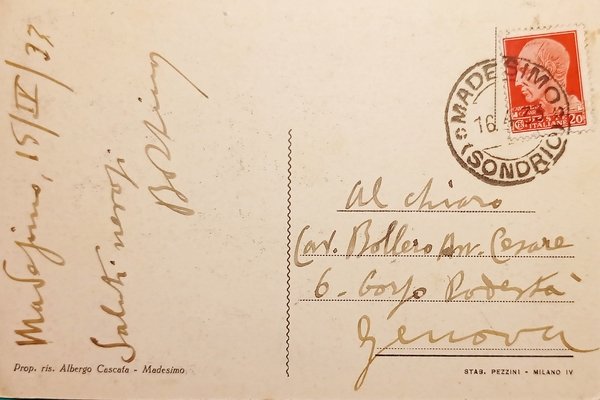 Madesimo, 15/IV/37
Saluti nevosi
MADESIMO
16.
(SONDRIO)
POSTE
ITALIANE
20
Al Chiaro
Cav. Bollero Av. Cesare
6 - Corso Podestà
Genova
Prop. ris. Albergo Cascata - Madesimo
STAB. PEZZINI - MILANO IV